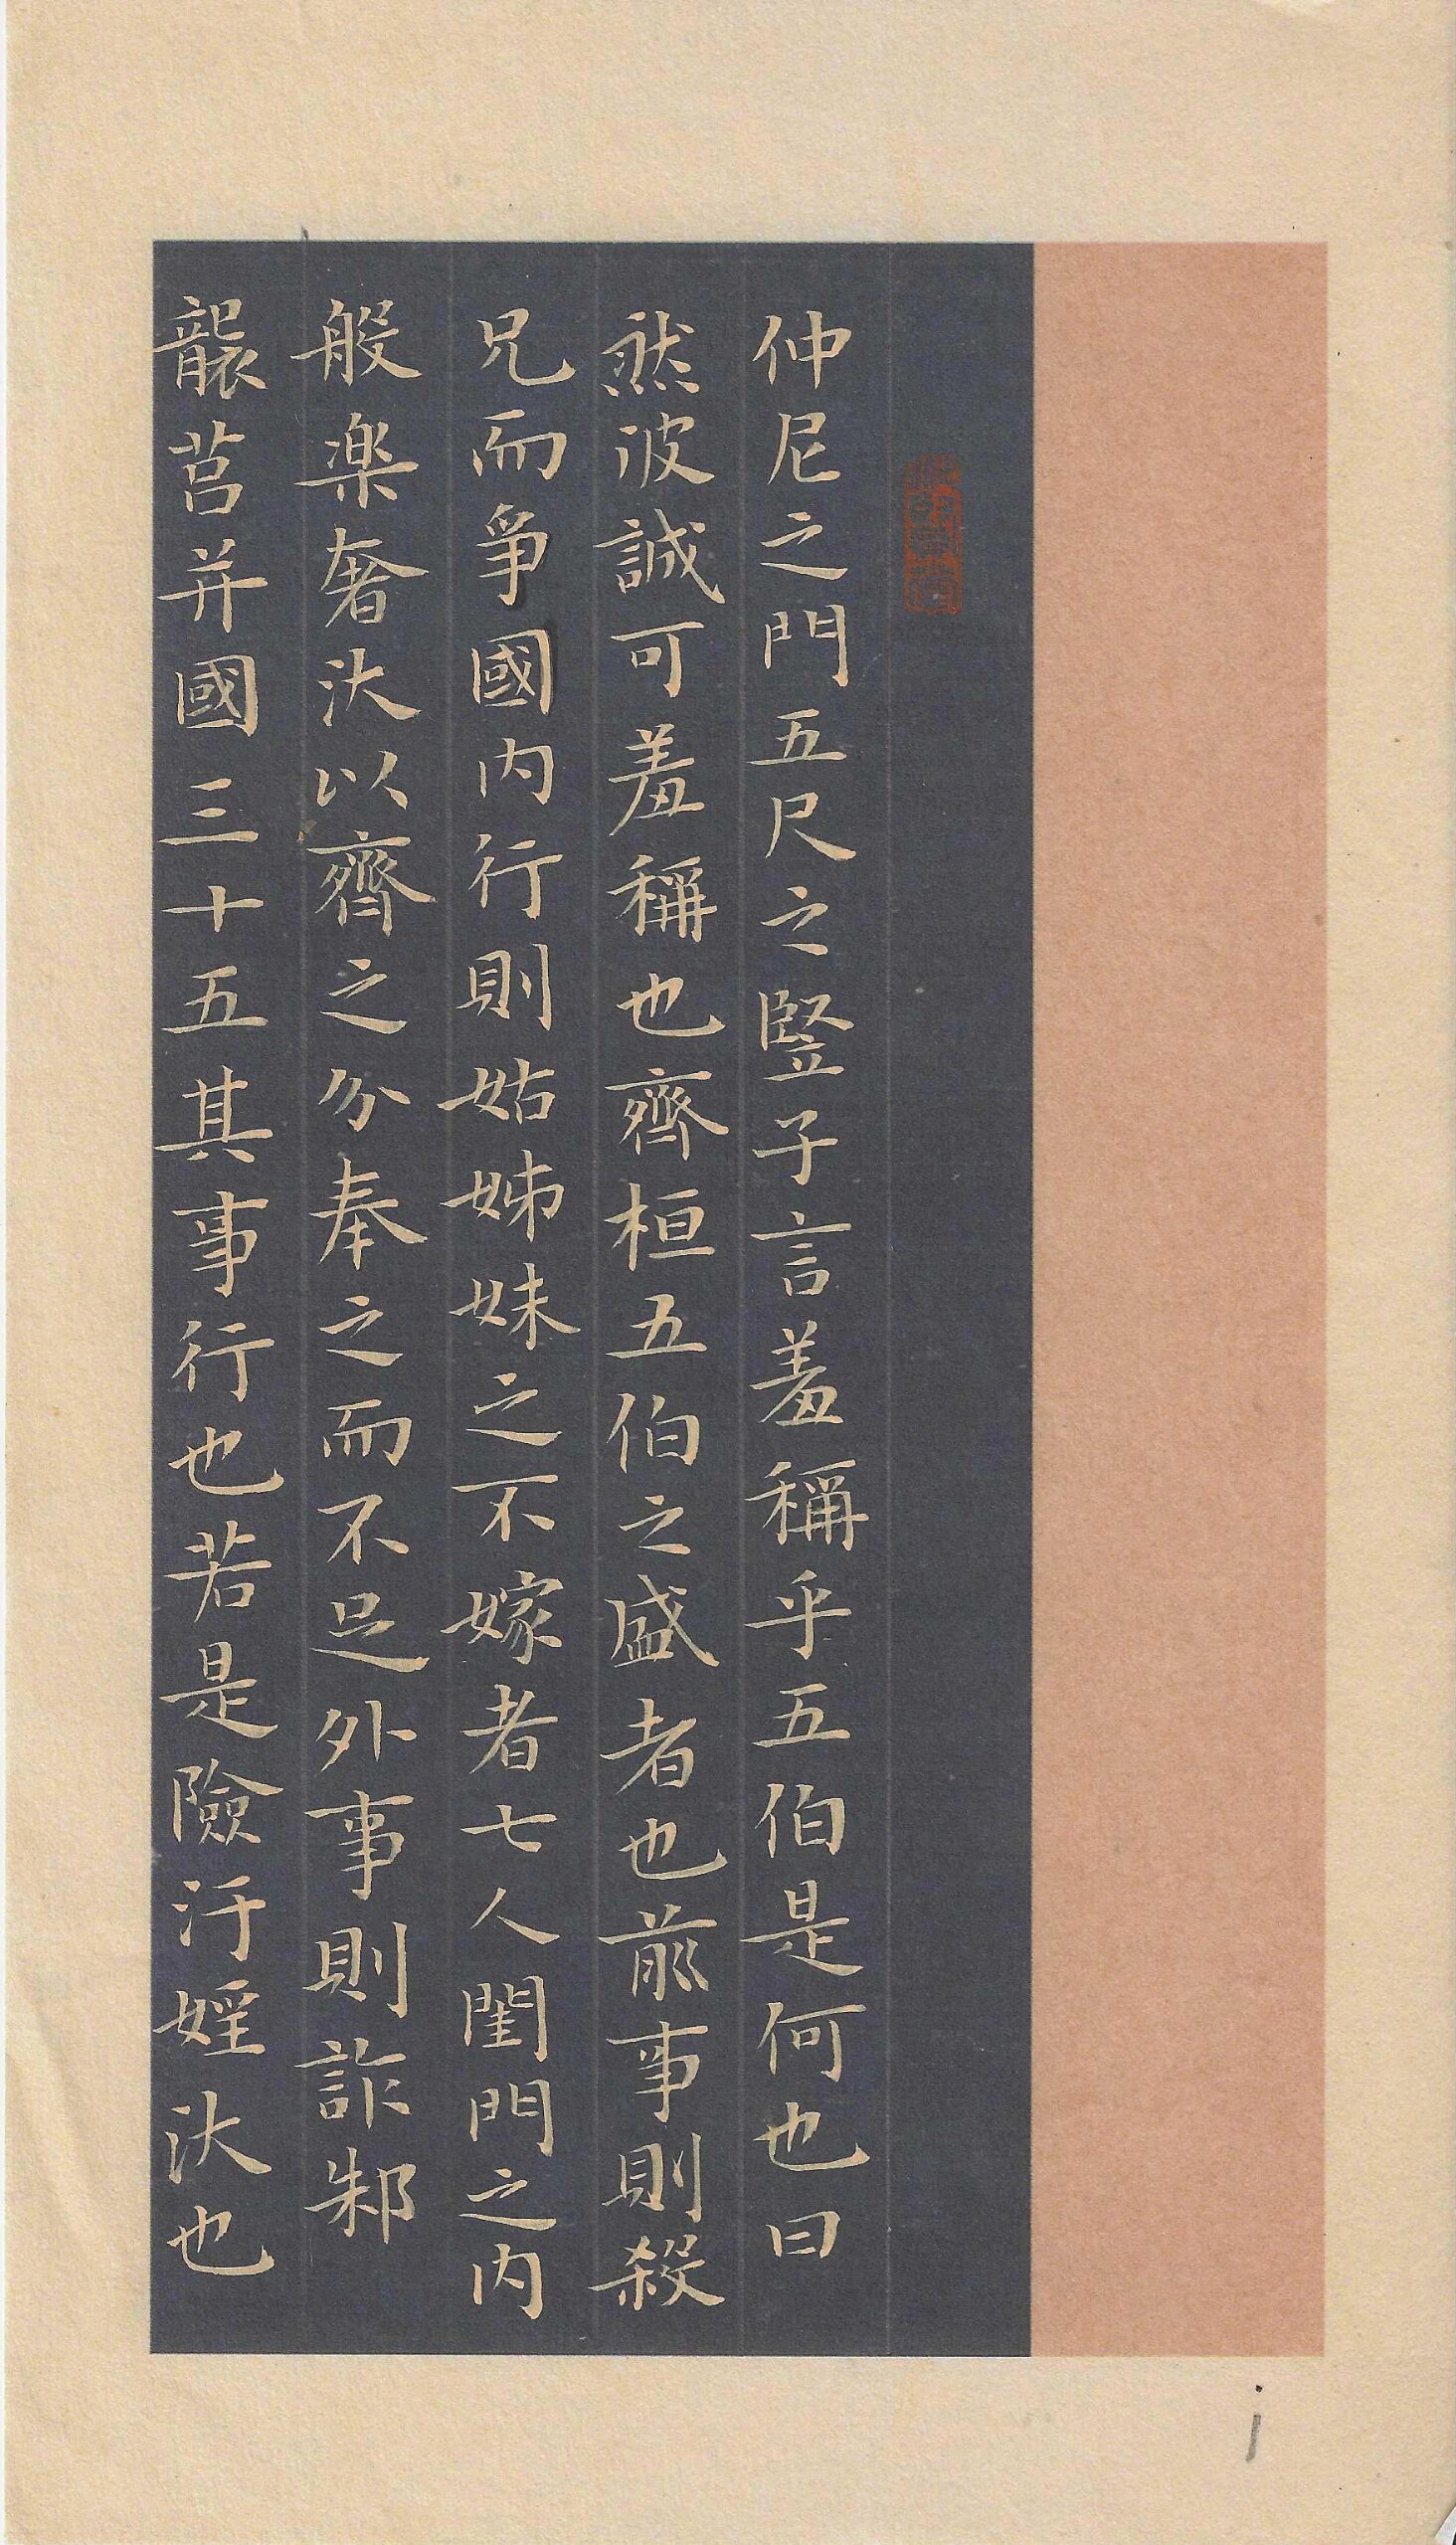 仲尼之門五尺之竪子言羞稱乎五伯是何也曰
然彼誠可羞稱也齊桓五伯之盛者也前事則殺
兄而爭國内行則姑姊妹之不嫁者七人閨門之内
般楽奢汏以齊之分奉之而不足外事則詐邾
襲莒并國三十五其事行也若是險汙婬汏也